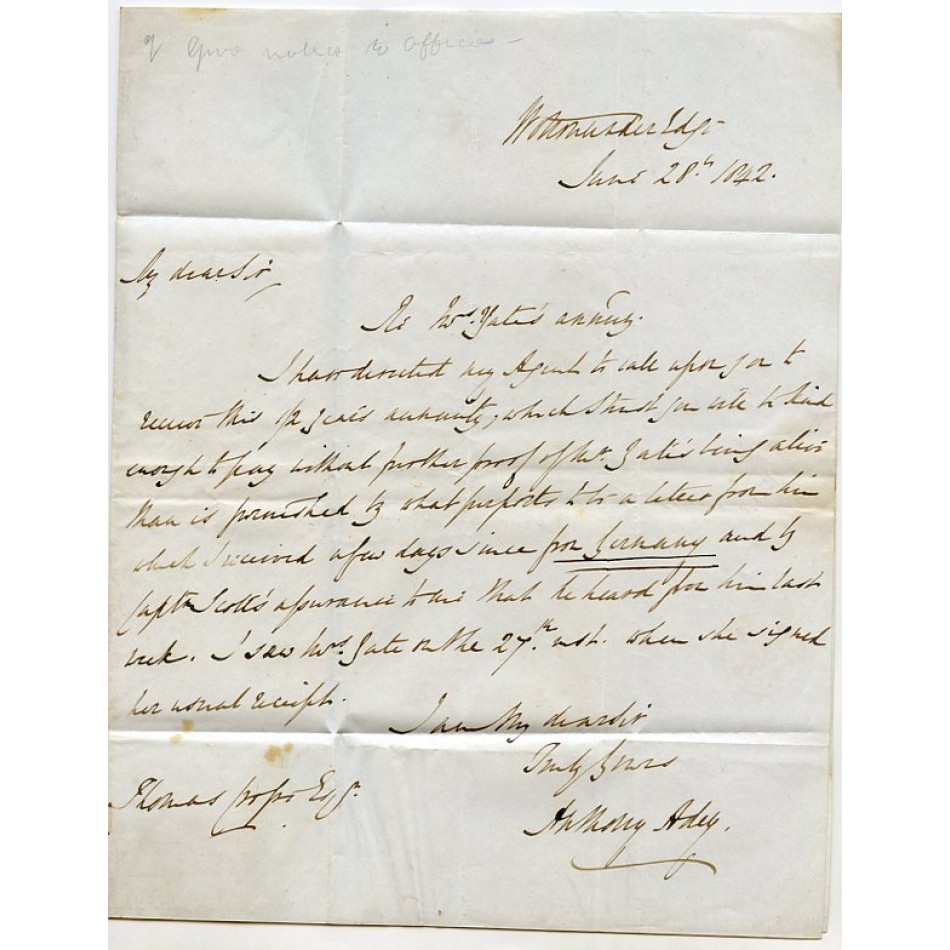 Give notice to office -
Wotton under Edge
June 28th 1842.
My dear Sir
Re Mrs. Yate's annuity.
I have directed my Agent to call upon you to
receive this 1/2 years annuity, which I trust you will be kind
enough to pay without further proof of Mr. Yate's being alive
than is furnished by what purports to be a letter from him
which I received a few days since from Germany and by
Captn Scott's assurance to me that he heard from him last
week. I saw Mrs. Yate on the 27th inst. when she signed
her usual receipt.
I am My dear Sir
Truly Yours
Thomas Esqr.
Anthony Adey.